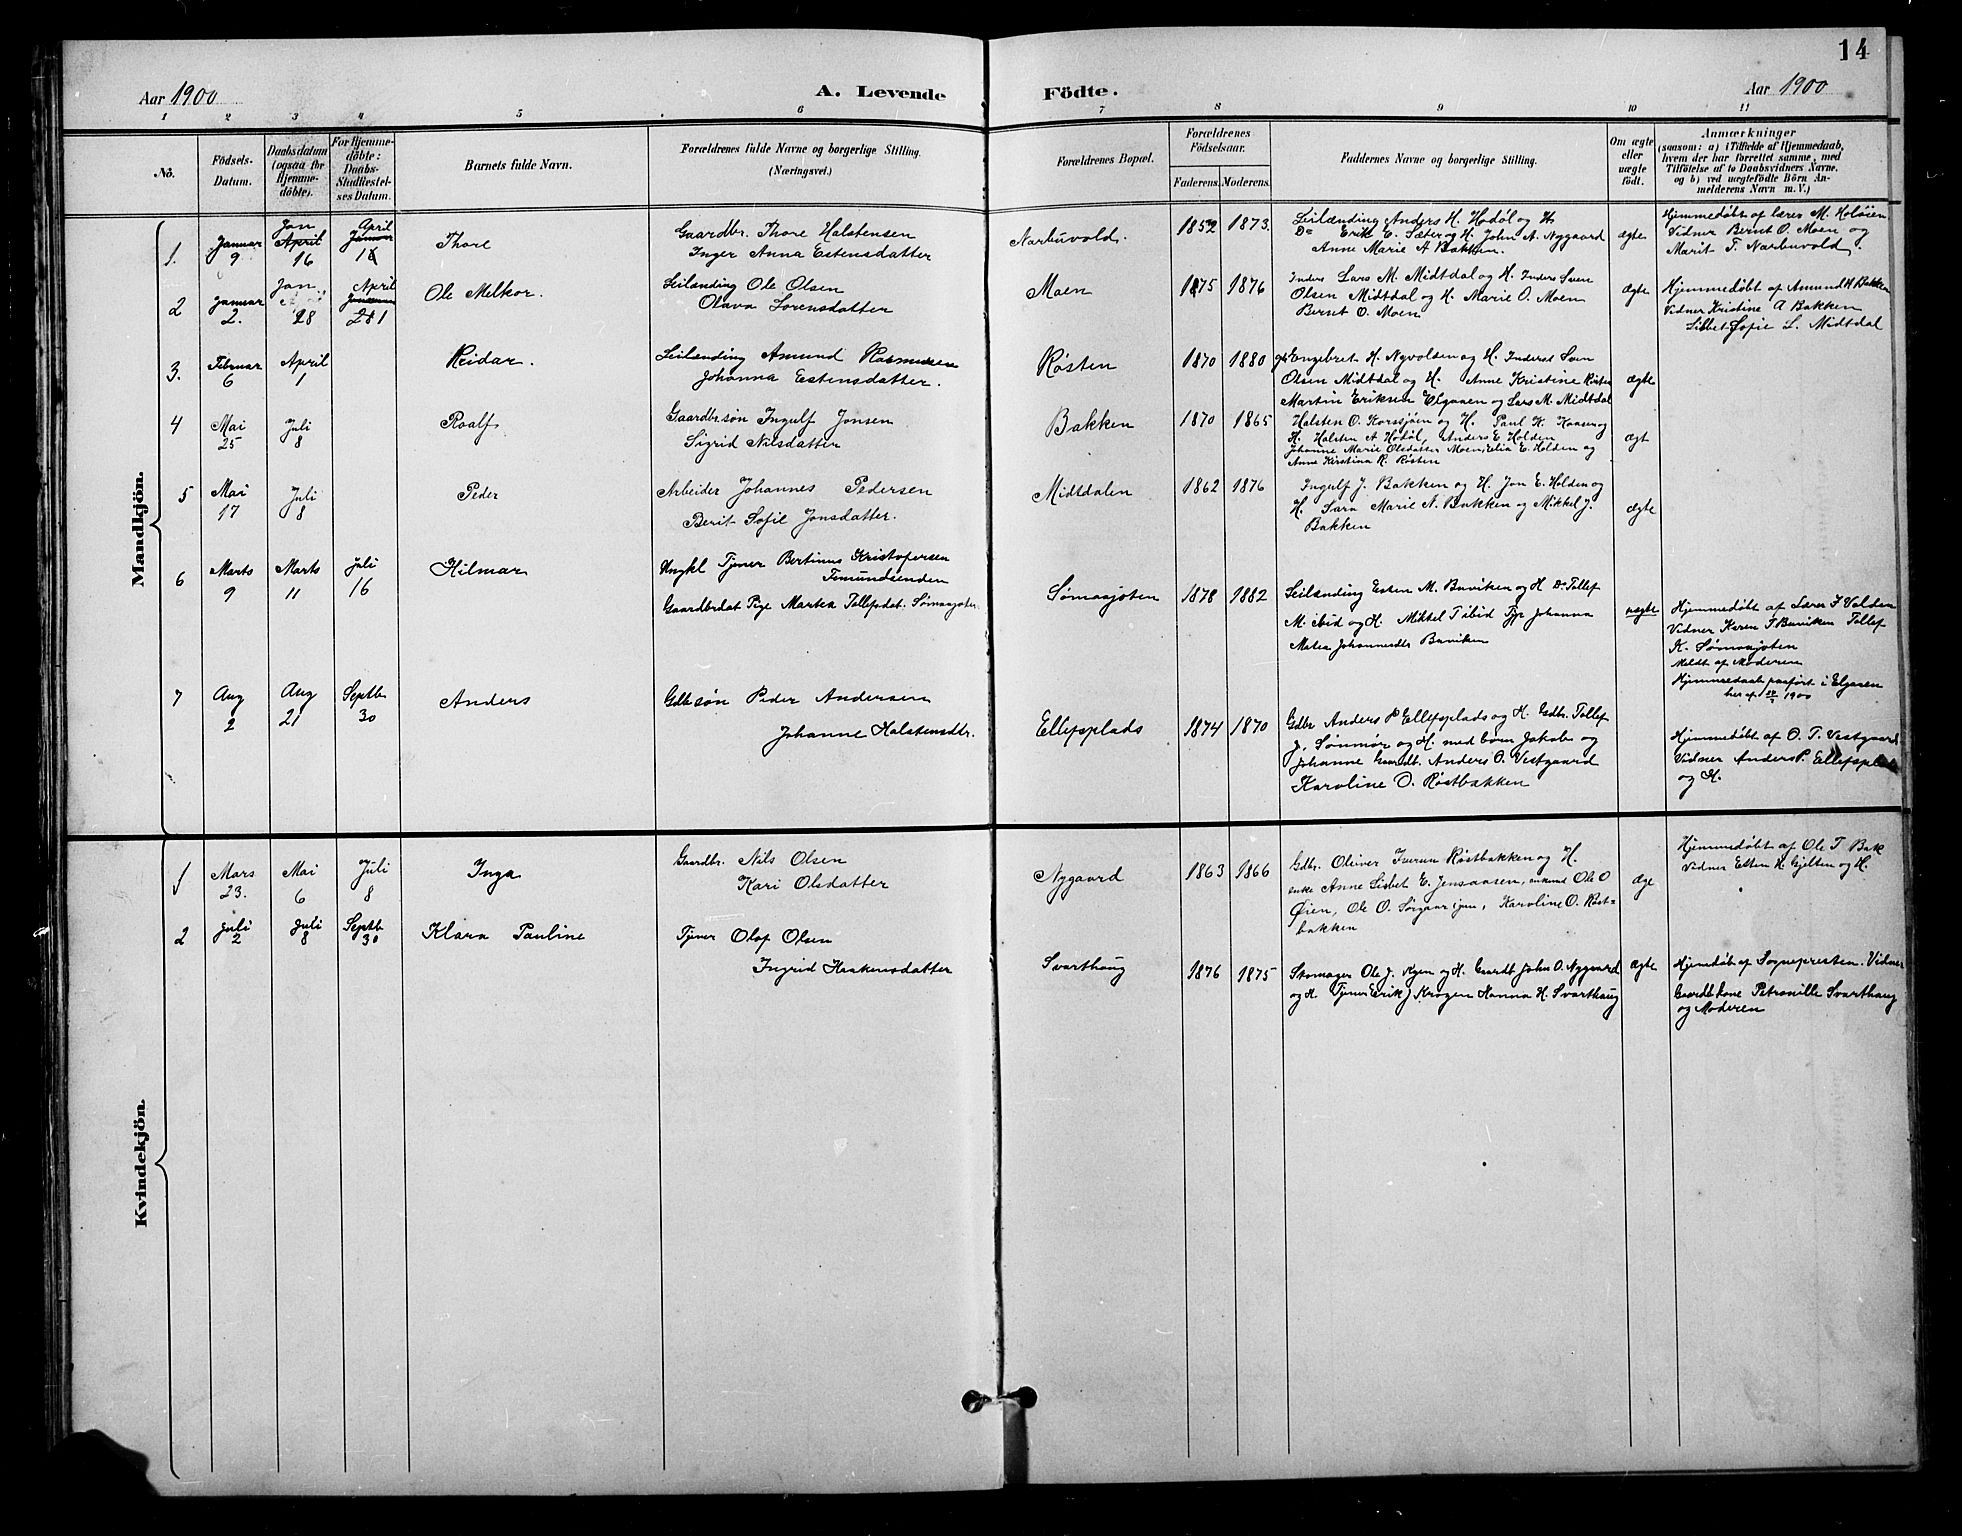 14
Aar 1900
A. Levende Födte.
Aar 1900
1 2 3 4 5 6 7 8 9 10 11
Nô.
Födsels-Datum.
Daabsdatum (ogsaa for Hjemme-döbte).
For Hjemme-döbte: Daabs-Stadfæstel-ses Datum.
Barnets fulde Navn.
Forældrenes fulde Navne og borgerlige Stilling.
(Næringsvei.)
Forældrenes Bopæl.
Forældrenes Födselsaar.
Faderens. Moderens.
Faddernes Navne og borgerlige Stilling.
Om ægte eller uægte födt.
Anmærkninger
(saasom: a) i Tilfælde af Hjemmedaab,
hvem der har forrettet samme, med
Tilföielse af to Daabsvidners Navne,
og b) ved uægtefödte Börn An-
melderens Navn m. V.)
Mandkjön.
1. Januar 9 Jan April 16 April Januar 1 Thore
Gaardbr. Thore Halstensen
Inger Anna Estensdatter
Narbuvold. 1852 1873.
Leilænding Anders H. Hodøl og H.
Do Erik E. Sæter og H. John A. Nygaard
Anne Marie A Bakken.
ægte
Hjemmedøbt af lærer M. Holøien
Vidner Bernt O. Moen og
Marit T. Narbuvold.
2 Januar 2. Jan 28 April Januar 1 Ole Melkor.
Leilænding Ole Olsen
Olava Lorensdatter
Moen 1875 1876
Inders Lars M. Midtdal og H. Inders Sven
Olsen Midtdal og H. Marie O. Moen
Bernt O. Moen
ægte
Hjemmedøbt af Amund H Bakken
Vidner Kristine A Bakken
Lisbet Sofie L. Midtdal
3. Februar 6 April 1 Reidar.
Leilænding Amund Rasmussen
Johanna Estensdatter.
Røsten 1870 1880
Engebret H. Nyvolden og H. Inderst Sven
Olsen Midtdal og H. Anne Kristine Røsten
Martin Eriksen Elgaaen og Lars M. Midtdal
ægte
4 Mai 25 Juli 8 Roalf
Gaardbr søn Ingulf Jonsen
Sigrid Nilsdatter
Bakken 1870 1865
Halsten O. Korssjøen og H. Paul H. Kaasen og
H. Halsten A Hodøl, Anders E Holden
Johanne Marie Olsdatter Moen, Elia E. Holden og
Anne Kirstina R. Røsten
ægt
5 Mai 17 Juli 8 Peder
Arbeider Johannes Pedersen
Berit Sofie Jonsdatter.
Midtdalen 1862 1876
Ingulf J. Bakken og H. Jon E. Holden og
H. Sara Marie N. Bakken og Mikkel J.
Bakken
ægte
6 Marts 9 Marts 11 Juli 16 Hilmar
Ungkl Tjener Bertinus Kristofersen
Femundsenden
Gaardbrdat Pige Martea Tollefsdat. Sømaajoten
Sømaajoten 1878 1882
Leilænding Esten M. Buviken og H Do Tollef
M. ibid og H. Mikkel T ibid Tjp Johanna
Matea Johannesdtr Buviken
uægte
Hjemmedøbt af Lærer F Volden
Vidner Karen T. Buviken Tollef
K. Sømaajoten
Meldt af Moderen
Hjemmedaab paaført i Elgaaen
1900
7 Aug 2 Aug 21 Septb 30 Anders
Gdb søn Peder Andersen
Johanne Halstensdtr.
Ellefsplads 1874 1870
Gdbr Anders P Ellefsplads og H. Gdbr. Tollef
J. Sønmør og H. med børn Jakob og
Johanne Gaardb. Anders O. Vestgaard
Karoline O. Røstbakken
Hjemmedøbt af O. T. Vestgaard
Vidner Anders P. Ellefsplads
og H.
Kvindekjön.
1 Mars 23. Mai 6 Juli 8 Inga
Gaardbr. Nils Olsen
Kari Olsdatter
Nygaard 1863 1866
Gdbr. Oliver Iversen Røstbakken og H.
enke Anne Lisbet E. Jensaasen, Ole O
Øien, Ole O. Sørgaard, Karoline O. Røst=
bakken
æge
Hjemmedøbt af Ole T Bak
Vidner Elten H. Gjelten og H.
2 Juli 2 Juli 8 Septb 30 Klara Pauline
Tjener Olof Olsen
Ingrid Haakensdatter
Svarthaug 1876 1875
Skomager Ole J. Moen og H. Gaardb John O. Nygaard
og H. Tjener Erik J Krogen Hanna H. Svarthaug
ægte
Hjemdøbt af Sognepresten. Vidner
Gaardb kone Petronille Svarthaug
og Moderen